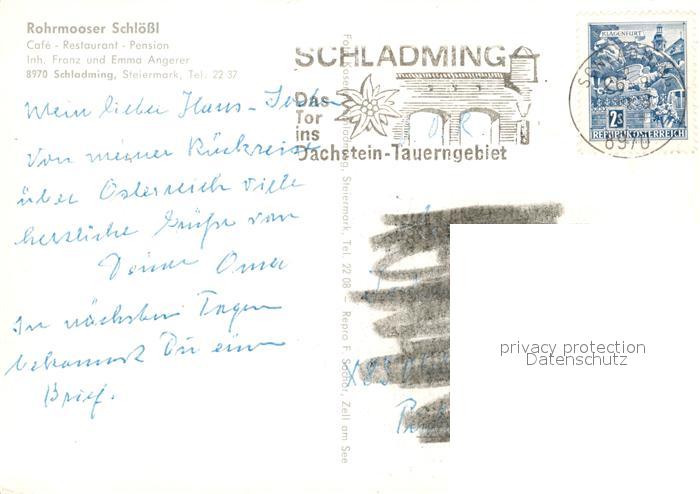 Rohrmooser Schlößl
Café - Restaurant - Pension
Inh. Franz und Emma Angerer
8970 Schladming, Steiermark, Tel. 22 37
SCHLADMING
Das
Tor
ins
Dachstein-Tauerngebiet
KLAGENFURT
2S
REPUBLIK ÖSTERREICH
8970
Mein lieber Hans-
Von meiner Rückreise
über Österreich viele
herzliche Grüße von
Deiner Oma
In nächsten Tagen
bekommst Du einen
Brief.
Schladming, Steiermark, Tel. 22 08 — Repro F. Sochor, Zell am See
privacy protection
Datenschutz